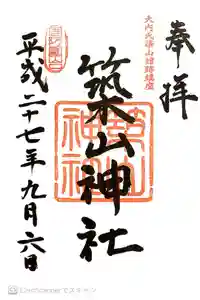 奉拝
大内氏築山館跡鎮座
築山神社
築山神社
平成二十七年九月六日
CamScannerでスキャン